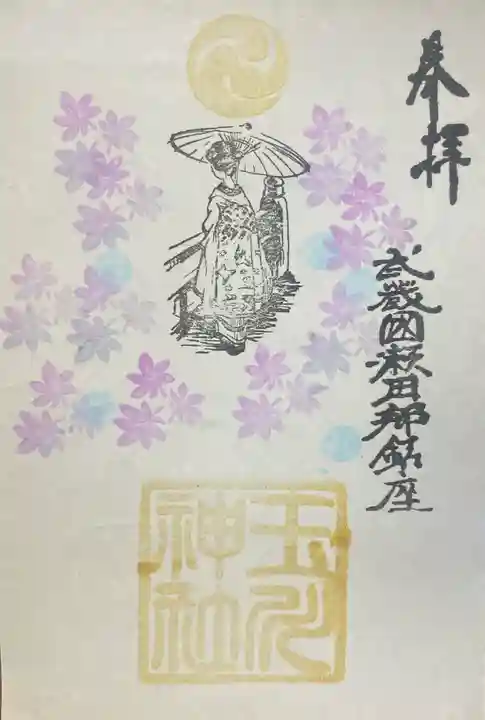 奉拝
武蔵國荏田郷鎮座
玉川
神社